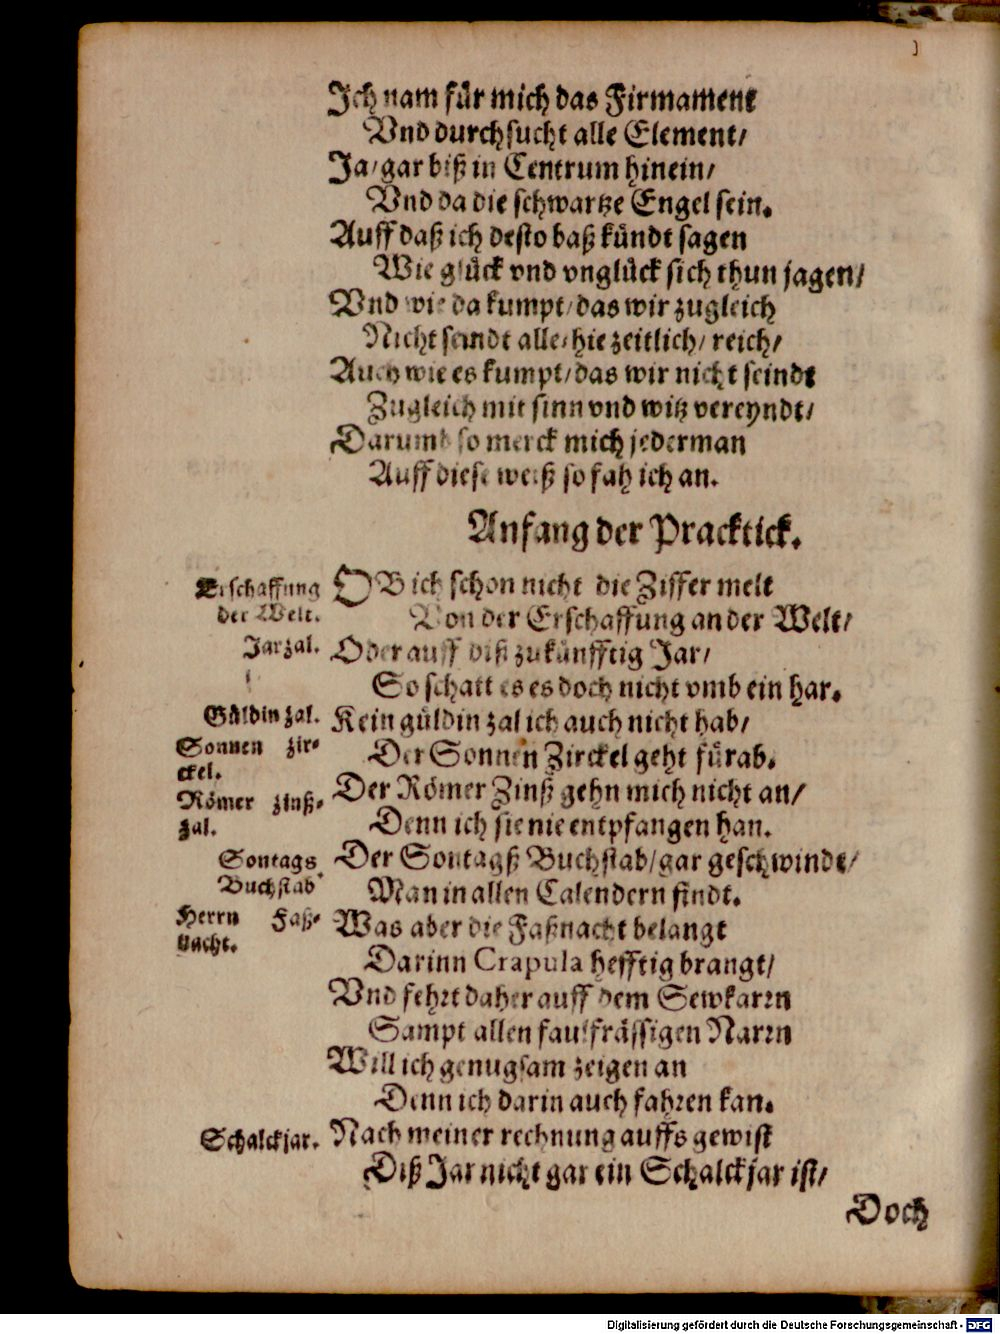 Ich nam für mich das Firmament
Vnd durchsucht alle Element/
Ja/gar biß in Centrum hinein/
Vnd da die schwartze Engel sein.
Auff daß ich desto baß kündt sagen
Wie glück vnd vnglück sich thun jagen/
Vnd wie da kumpt/das wir zugleich
Nicht seindt alle/hie zeitlich/reich/
Auch wie es kumpt/das wir nicht seindt
Zugleich mit sinn vnd witz vereyndt/
Darumb so merck mich jederman
Auff diese weiß so fah ich an.
Anfang der Pracktick.
Erschaffung
der Welt.
OB ich schon nicht die Ziffer melt
Von der Erschaffung an der Welt/
Jarzal.
Oder auff diß zukünfftig Jar/
So schatt es es doch nicht vmb ein har.
Güldin zal.
Kein güldin zal ich auch nicht hab/
Sonnen zir-
ckel.
Der Sonnen Zirckel geht fürab.
Römer zinß-
zal.
Der Römer Zinß gehn mich nicht an/
Denn ich sie nie entpfangen han.
Sontags
Buchstab
Der Sontagß Buchstab/gar geschwindt/
Man in allen Calendern findt.
Herrn Faß-
nacht.
Was aber die Faßnacht belangt
Darinn Crapula hefftig brangt/
Vnd fehrt daher auff dem Sewkarrn
Sampt allen faulfrässigen Narrn
Will ich genugsam zeigen an
Denn ich darin auch fahren kan.
Schalckjar.
Nach meiner rechnung auffs gewist
Diß Jar nicht gar ein Schalckjar ist/
Doch
Digitalisierung gefördert durch die Deutsche Forschungsgemeinschaft - DFG